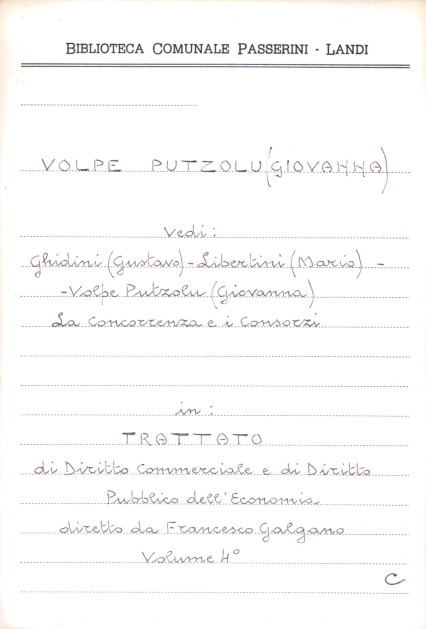 BIBLIOTECA COMUNALE PASSERINI - LANDI
VOLPE PUTZOLU (GIOVANNA)
Vedi:
Ghidini (Gustavo) - Libertini (Mario) -
- Volpe Putzolu (Giovanna)
La Concorrenza e i Consorzi
in:
TRATTATO
di Diritto Commerciale e di Diritto
Pubblico dell'Economia
diretto da Francesco Galgano
Volume 4°
C